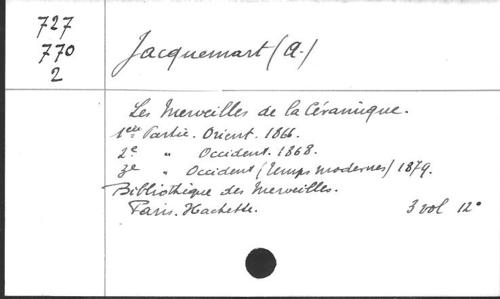 727
770
2
Jacquemart (A.)
Les Merveilles de la Céramique.
1ere Partie. Orient. 1866.
2e " Occident. 1868.
3e " Occident (Temps modernes) 1879.
Bibliothèque des Merveilles.
Paris. Hachette. 3 vol 12°